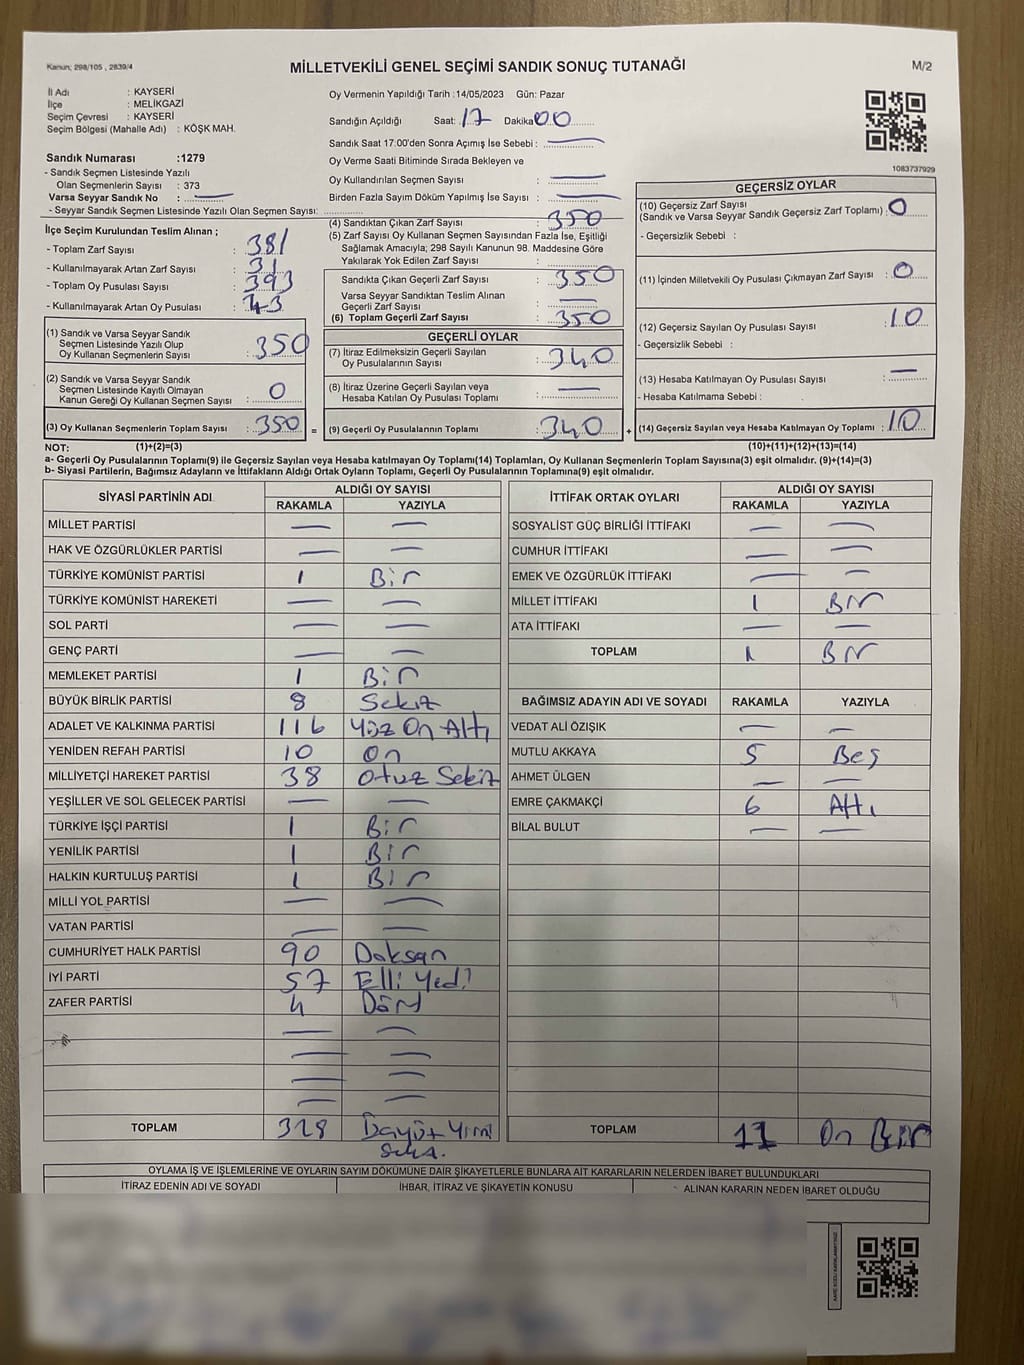 Kanun; 298/105 , 2839/4
MİLLETVEKİLİ GENEL SEÇİMİ SANDIK SONUÇ TUTANAĞI
M/2
İl Adı : KAYSERİ
İlçe : MELİKGAZİ
Seçim Çevresi : KAYSERİ
Seçim Bölgesi (Mahalle Adı) : KÖŞK MAH.
Oy Vermenin Yapıldığı Tarih :14/05/2023 Gün: Pazar
Sandığın Açıldığı Saat: 17 Dakika 00
Sandık Saat 17.00'den Sonra Açımış İse Sebebi : —
Oy Verme Saati Bitiminde Sırada Bekleyen ve
Oy Kullandırılan Seçmen Sayısı : —
Birden Fazla Sayım Döküm Yapılmış İse Sayısı : —
1083737929
Sandık Numarası :1279
- Sandık Seçmen Listesinde Yazılı
Olan Seçmenlerin Sayısı : 373
Varsa Seyyar Sandık No : —
- Seyyar Sandık Seçmen Listesinde Yazılı Olan Seçmen Sayısı:
İlçe Seçim Kurulundan Teslim Alınan ;
- Toplam Zarf Sayısı : 381
- Kullanılmayarak Artan Zarf Sayısı : 31
- Toplam Oy Pusulası Sayısı : 393
- Kullanılmayarak Artan Oy Pusulası : 43
(1) Sandık ve Varsa Seyyar Sandık
Seçmen Listesinde Yazılı Olup
Oy Kullanan Seçmenlerin Sayısı : 350
(2) Sandık ve Varsa Seyyar Sandık
Seçmen Listesinde Kayıtlı Olmayan
Kanun Gereği Oy Kullanan Seçmen Sayısı : 0
(3) Oy Kullanan Seçmenlerin Toplam Sayısı : 350 =
(4) Sandıktan Çıkan Zarf Sayısı : 350
(5) Zarf Sayısı Oy Kullanan Seçmen Sayısından Fazla İse, Eşitliği
Sağlamak Amacıyla; 298 Sayılı Kanunun 98. Maddesine Göre
Yakılarak Yok Edilen Zarf Sayısı :
Sandıkta Çıkan Geçerli Zarf Sayısı : 350
Varsa Seyyar Sandıktan Teslim Alınan
Geçerli Zarf Sayısı : —
(6) Toplam Geçerli Zarf Sayısı : 350
GEÇERLİ OYLAR
(7) İtiraz Edilmeksizin Geçerli Sayılan
Oy Pusulalarının Sayısı : 340
(8) İtiraz Üzerine Geçerli Sayılan veya
Hesaba Katılan Oy Pusulası Toplamı : —
(9) Geçerli Oy Pusulalarının Toplamı : 340 +
GEÇERSİZ OYLAR
(10) Geçersiz Zarf Sayısı
(Sandık ve Varsa Seyyar Sandık Geçersiz Zarf Toplamı) : 0
- Geçersizlik Sebebi :
(11) İçinden Milletvekili Oy Pusulası Çıkmayan Zarf Sayısı : 0
(12) Geçersiz Sayılan Oy Pusulası Sayısı : 10
- Geçersizlik Sebebi :
(13) Hesaba Katılmayan Oy Pusulası Sayısı : —
- Hesaba Katılmama Sebebi :
(14) Geçersiz Sayılan veya Hesaba Katılmayan Oy Toplamı : 10
NOT: (1)+(2)=(3) (10)+(11)+(12)+(13)=(14)
a- Geçerli Oy Pusulalarının Toplamı(9) ile Geçersiz Sayılan veya Hesaba katılmayan Oy Toplamı(14) Toplamları, Oy Kullanan Seçmenlerin Toplam Sayısına(3) eşit olmalıdır. (9)+(14)=(3)
b- Siyasi Partilerin, Bağımsız Adayların ve İttifakların Aldığı Ortak Oyların Toplamı, Geçerli Oy Pusulalarının Toplamına(9) eşit olmalıdır.
SİYASİ PARTİNİN ADI ALDIĞI OY SAYISI
RAKAMLA YAZIYLA
MİLLET PARTİSİ — —
HAK VE ÖZGÜRLÜKLER PARTİSİ — —
TÜRKİYE KOMÜNİST PARTİSİ 1 Bir
TÜRKİYE KOMÜNİST HAREKETİ — —
SOL PARTİ — —
GENÇ PARTİ — —
MEMLEKET PARTİSİ 1 Bir
BÜYÜK BİRLİK PARTİSİ 8 Sekiz
ADALET VE KALKINMA PARTİSİ 116 Yüz On Altı
YENİDEN REFAH PARTİSİ 10 On
MİLLİYETÇİ HAREKET PARTİSİ 38 Otuz Sekiz
YEŞİLLER VE SOL GELECEK PARTİSİ — —
TÜRKİYE İŞÇİ PARTİSİ 1 Bir
YENİLİK PARTİSİ 1 Bir
HALKIN KURTULUŞ PARTİSİ 1 Bir
MİLLİ YOL PARTİSİ — —
VATAN PARTİSİ — —
CUMHURİYET HALK PARTİSİ 90 Doksan
İYİ PARTİ 57 Elli Yedi
ZAFER PARTİSİ 4 Dört
— —
— —
— —
— —
TOPLAM 328
İTTİFAK ORTAK OYLARI ALDIĞI OY SAYISI
RAKAMLA YAZIYLA
SOSYALİST GÜÇ BİRLİĞİ İTTİFAKI — —
CUMHUR İTTİFAKI — —
EMEK VE ÖZGÜRLÜK İTTİFAKI — —
MİLLET İTTİFAKI 1 Bir
ATA İTTİFAKI — —
TOPLAM 1 Bir
BAĞIMSIZ ADAYIN ADI VE SOYADI RAKAMLA YAZIYLA
VEDAT ALİ ÖZIŞIK — —
MUTLU AKKAYA 5 Beş
AHMET ÜLGEN — —
EMRE ÇAKMAKÇİ 6 Altı
BİLAL BULUT — —
TOPLAM 11 On Bir
OYLAMA İŞ VE İŞLEMLERİNE VE OYLARIN SAYIM DÖKÜMÜNE DAİR ŞİKAYETLERLE BUNLARA AİT KARARLARIN NELERDEN İBARET BULUNDUKLARI
İTİRAZ EDENİN ADI VE SOYADI İHBAR, İTİRAZ VE ŞİKAYETİN KONUSU ALINAN KARARIN NEDEN İBARET OLDUĞU